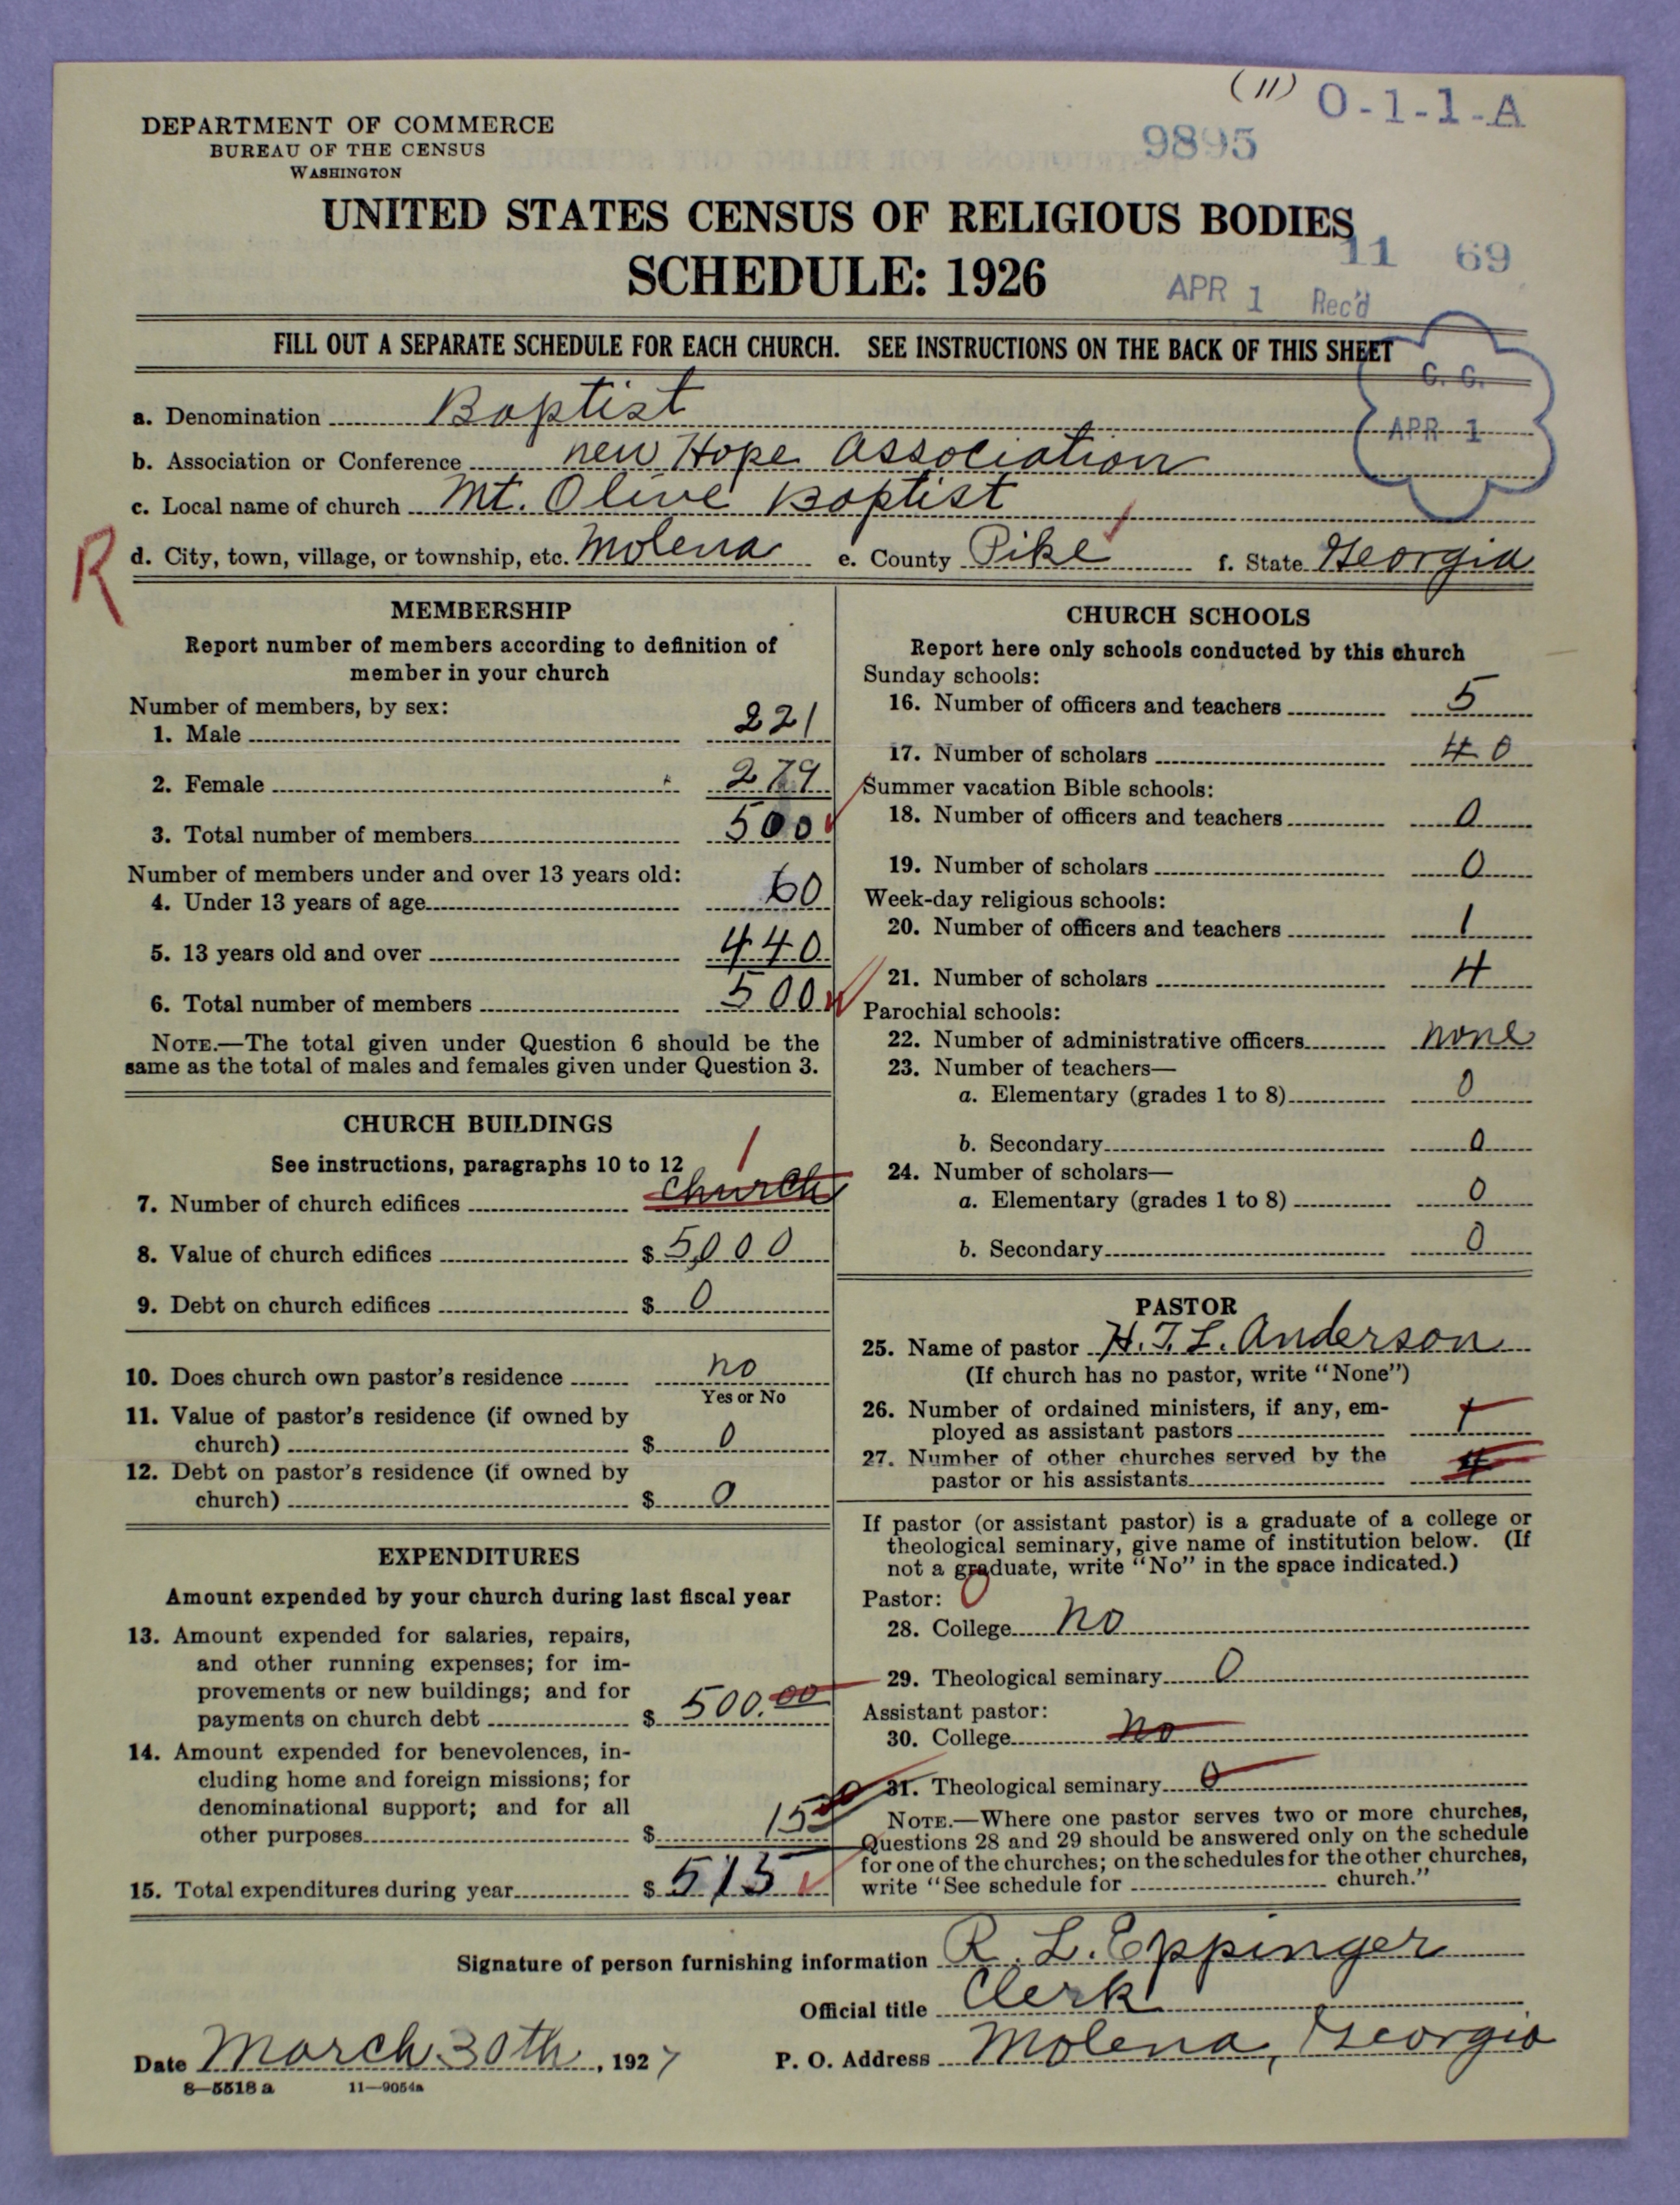 (11) O-1-1-A
DEPARTMENT OF COMMERCE
BUREAU OF THE CENSUS
WASHINGTON
9895
UNITED STATES CENSUS OF RELIGIOUS BODIES
SCHEDULE: 1926
11 69
APR 1 Rec'd
FILL OUT A SEPARATE SCHEDULE FOR EACH CHURCH. SEE INSTRUCTIONS ON THE BACK OF THIS SHEET
C. C.
APR 1
a. Denomination Baptist
b. Association or Conference new Hope Association
c. Local name of church Mt. Olive Baptist
R
d. City, town, village, or township, etc. Molena e. County Pike f. State Georgia
MEMBERSHIP
Report number of members according to definition of
member in your church
Number of members, by sex:
1. Male 221
2. Female 279
3. Total number of members 500
Number of members under and over 13 years old:
4. Under 13 years of age 60
5. 13 years old and over 440
6. Total number of members 500
NOTE.—The total given under Question 6 should be the
same as the total of males and females given under Question 3.
CHURCH BUILDINGS
See instructions, paragraphs 10 to 12
1
7. Number of church edifices church
8. Value of church edifices $ 5,000
9. Debt on church edifices $ 0
10. Does church own pastor's residence no
Yes or No
11. Value of pastor's residence (if owned by
church) $ 0
12. Debt on pastor's residence (if owned by
church) $ 0
EXPENDITURES
Amount expended by your church during last fiscal year
13. Amount expended for salaries, repairs,
and other running expenses; for im-
provements or new buildings; and for
payments on church debt $ 500.00
14. Amount expended for benevolences, in-
cluding home and foreign missions; for
denominational support; and for all
other purposes $ 15
15. Total expenditures during year $ 515
CHURCH SCHOOLS
Report here only schools conducted by this church
Sunday schools:
16. Number of officers and teachers 5
17. Number of scholars 40
Summer vacation Bible schools:
18. Number of officers and teachers 0
19. Number of scholars 0
Week-day religious schools:
20. Number of officers and teachers 1
21. Number of scholars 4
Parochial schools:
22. Number of administrative officers none
23. Number of teachers—
a. Elementary (grades 1 to 8) 0
b. Secondary 0
24. Number of scholars—
a. Elementary (grades 1 to 8) 0
b. Secondary 0
PASTOR
25. Name of pastor H. T. L. Anderson
(If church has no pastor, write "None")
26. Number of ordained ministers, if any, em-
ployed as assistant pastors
27. Number of other churches served by the
pastor or his assistants 4
If pastor (or assistant pastor) is a graduate of a college or
theological seminary, give name of institution below. (If
not a graduate, write "No" in the space indicated.)
Pastor: 0
28. College no
29. Theological seminary 0
Assistant pastor:
30. College no
31. Theological seminary 0
NOTE.—Where one pastor serves two or more churches,
Questions 28 and 29 should be answered only on the schedule
for one of the churches; on the schedules for the other churches,
write "See schedule for church."
Signature of person furnishing information R. L. Eppinger
Official title Clerk
Date March 30th, 1927 P. O. Address Molena, Georgia
8—5518 a 11—9054a